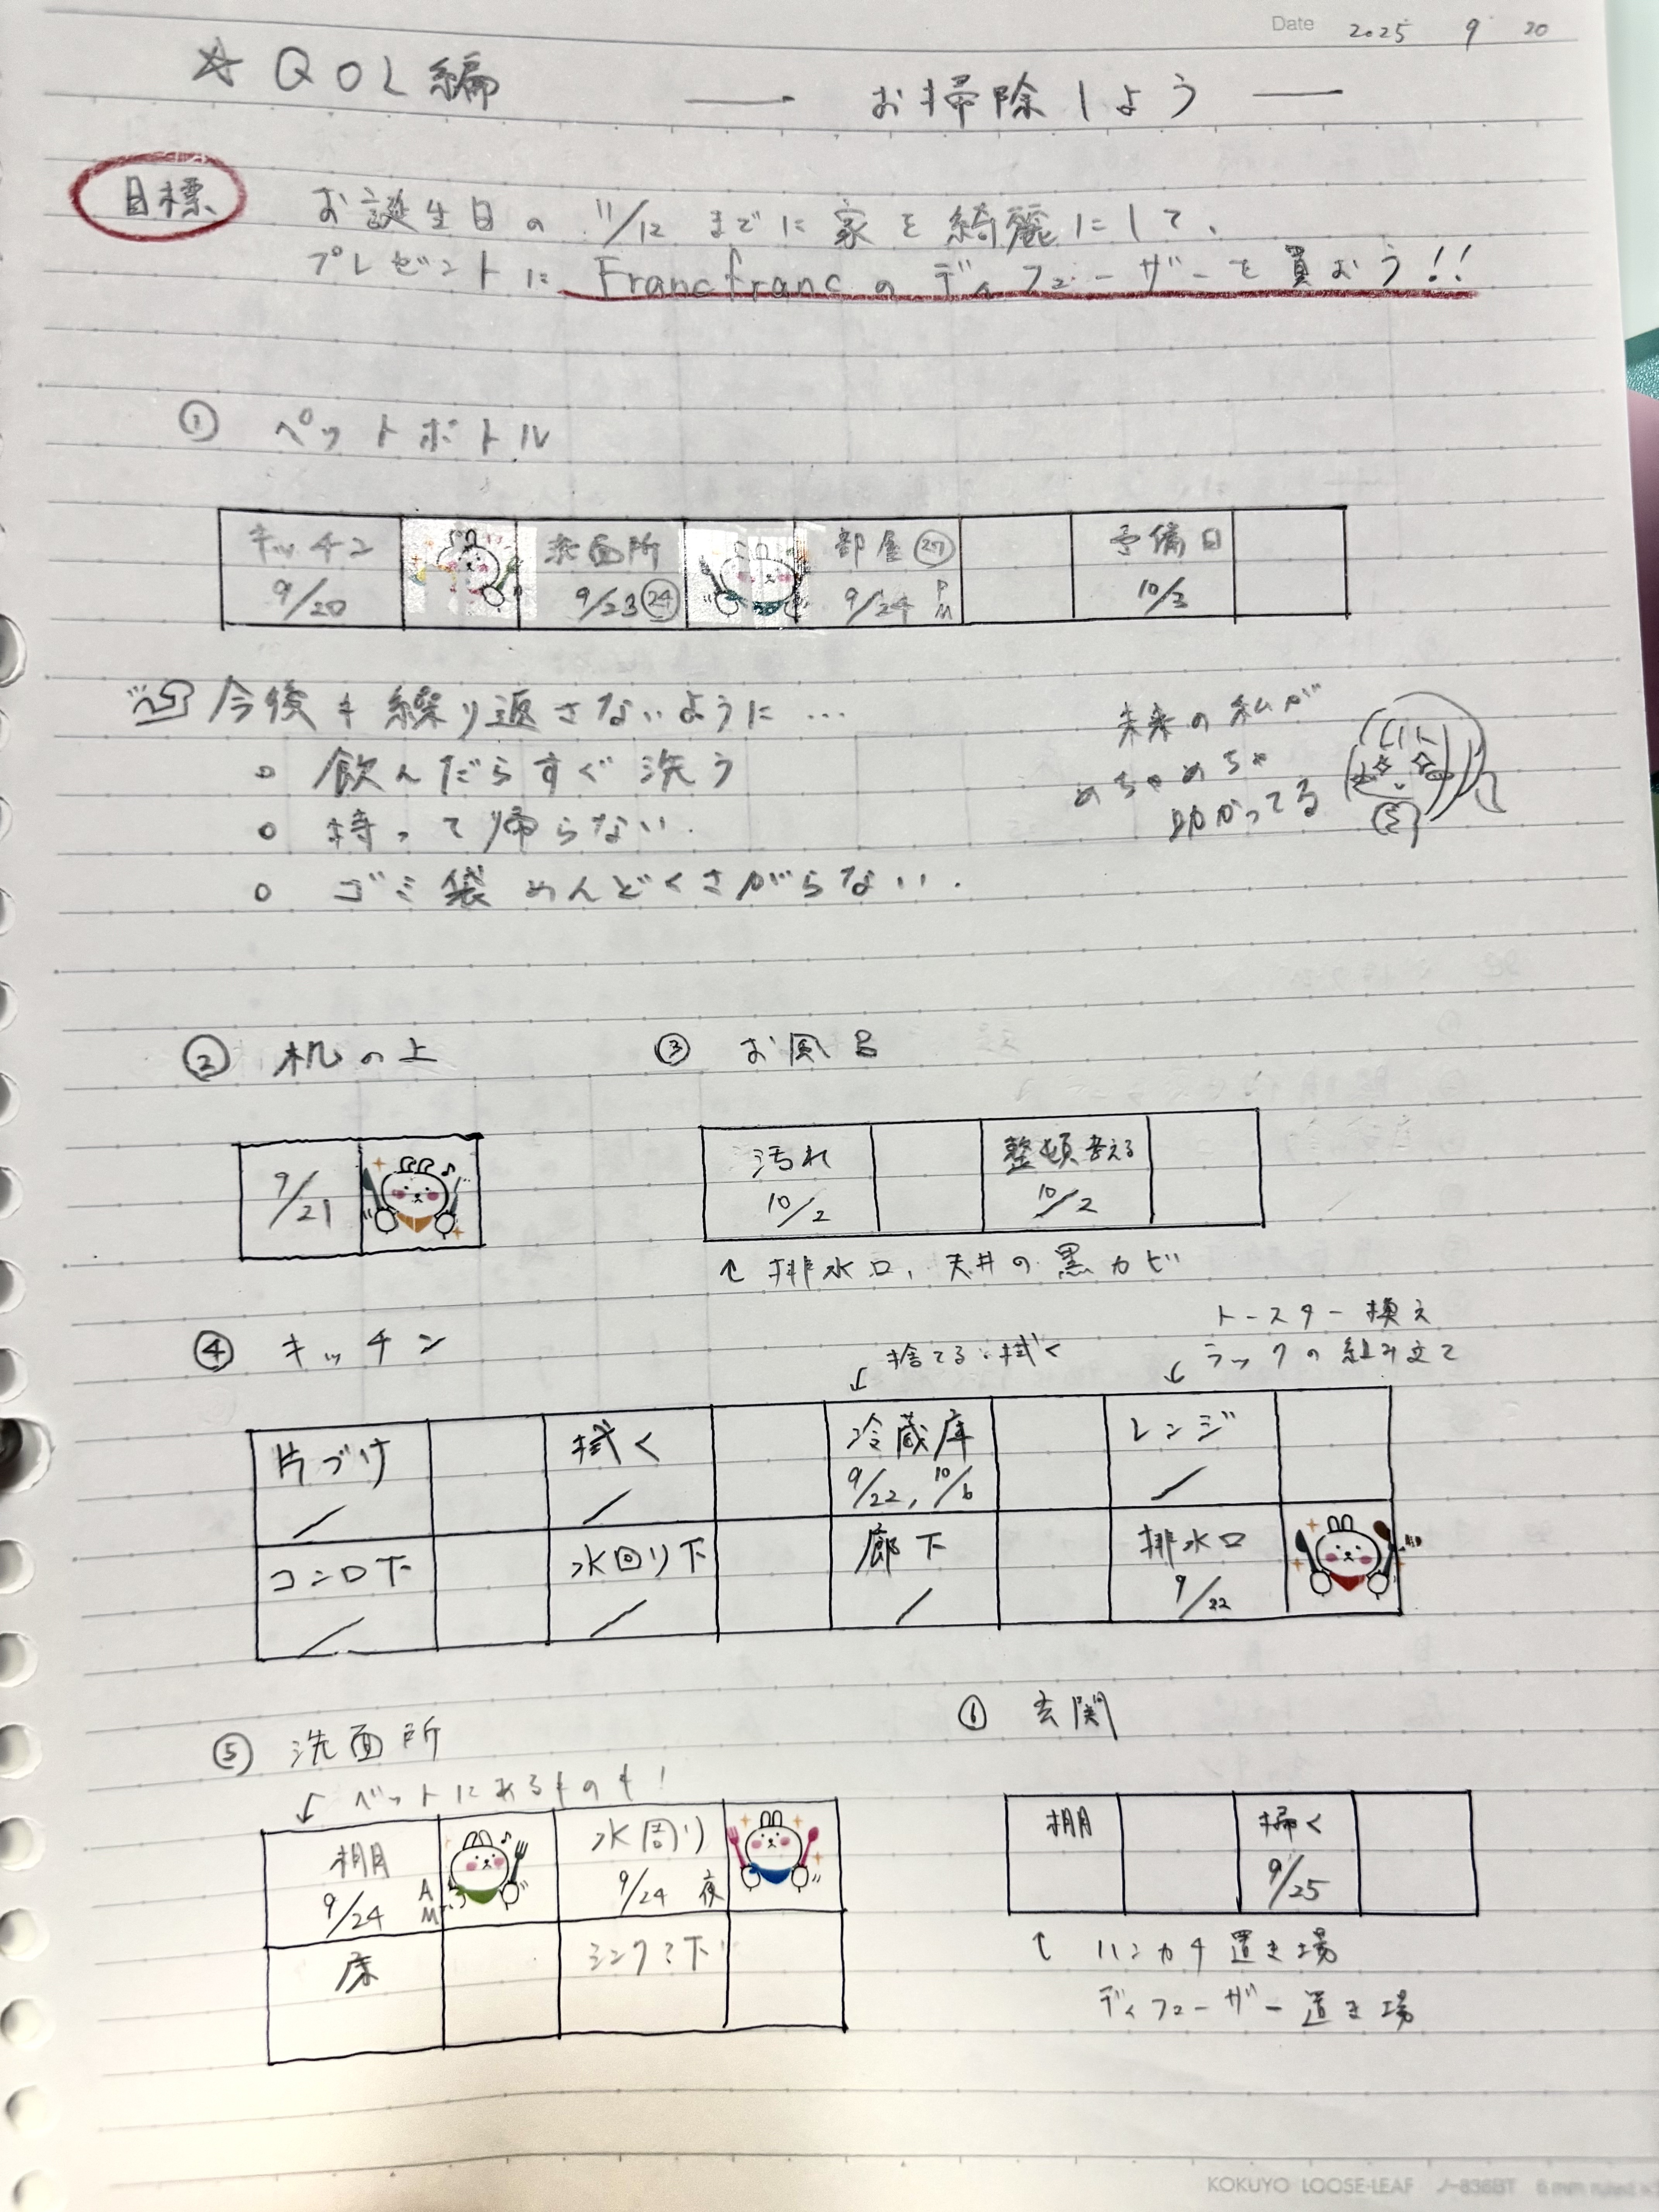 Date 2025 9 20
☆QOL編 ── お掃除しよう ──
目標 お誕生日の 11/12 までに家を綺麗にして、
プレゼントに Francfrancのディフューザーを買おう!!
① ペットボトル
キッチン 洗面所 部屋㉗ 予備日
9/20 9/23㉔ 9/24 PM 10/3
今後も繰り返さないように…
○ 飲んだらすぐ洗う
○ 持って帰らない.
○ ゴミ袋めんどくさがらない.
未来の私が
めちゃめちゃ
助かってる
② 机の上
9/21
③ お風呂
汚れ 整頓考える
10/2 10/2
↑ 排水口、天井の黒カビ
④ キッチン
↙ 捨てる・拭く
トースター換え
↙ ラックの組み立て
片づけ 拭く 冷蔵庫 レンジ
/ / 9/22, 10/6 /
コンロ下 水回り下 廊下 排水口
/ / / 9/22
⑤ 洗面所
↙ ベットにあるものも!
棚 水周り
9/24 AM 9/24 夜
床 シンク?下
⑥ 玄関
棚 掃く
9/25
↑ ハンカチ置き場
ディフューザー置き場
KOKUYO LOOSE-LEAF ノ-836BT 6mm ruled